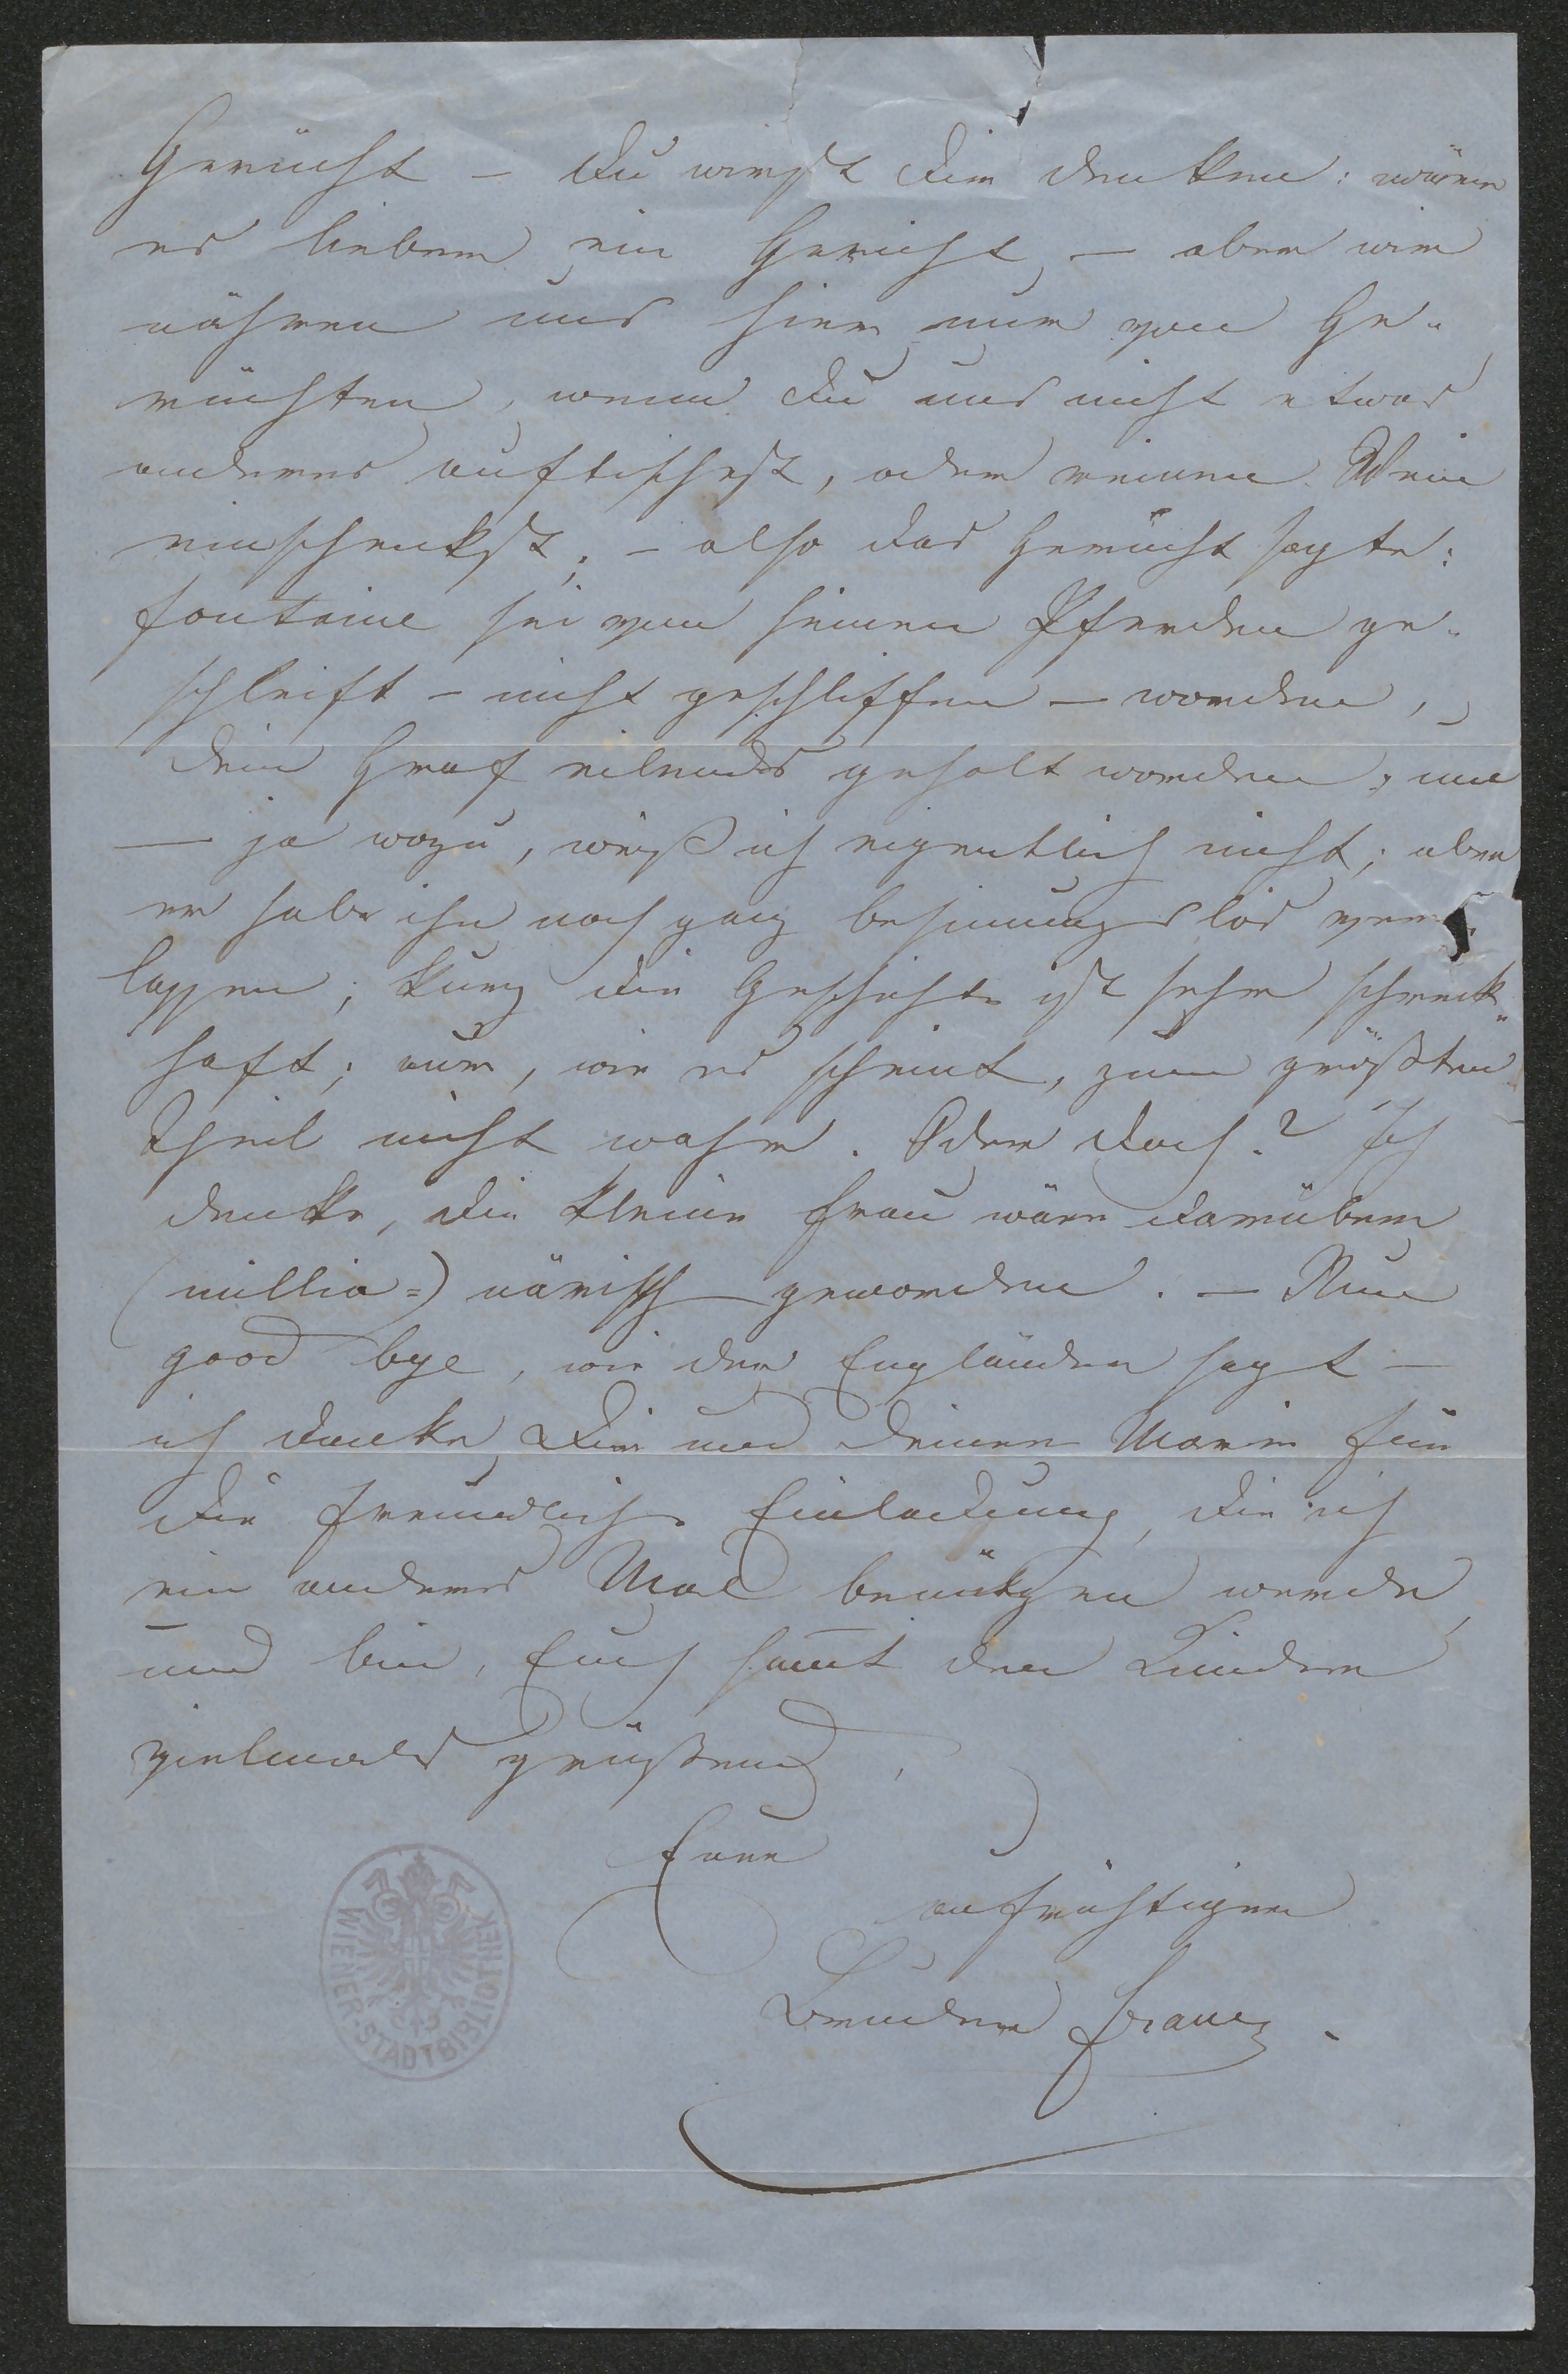 Gerücht – Du wirst Dir denken: wäre
es lieber ein Gericht, – aber wir
nähren uns hier nur von Ge-
rüchten, wenn Du uns nicht etwas
anderes auftischest, oder reinen Wein
einschenkst; – also das Gerücht sagte:
Fontaine sei von seinen Pferden ge-
schleift – nicht geschliffen – worden,
Dein Graf eilends geholt worden, um
– ja wozu, weiß ich eigentlich nicht; aber
er habe ihn noch ganz besinnungslos ver-
lassen; kurz die Geschichte ist sehr schreck-
haft; nur, wie es scheint, zum größten
Theil nicht wahr. Oder doch? Ich
denke, die kleine Frau wäre darüber
(millia=) närrisch geworden. – Nun
good bye, wie der Engländer sagt –
ich danke Dir und Deiner Marie für
die freundliche Einladung, die ich
ein anderes Mal benützen werde,
und bin, Euch samt den Kindern
vielmals grüßend,
Euer
aufrichtiger
Bruder Franz.
WIENER-STADTBIBLIOTHEK